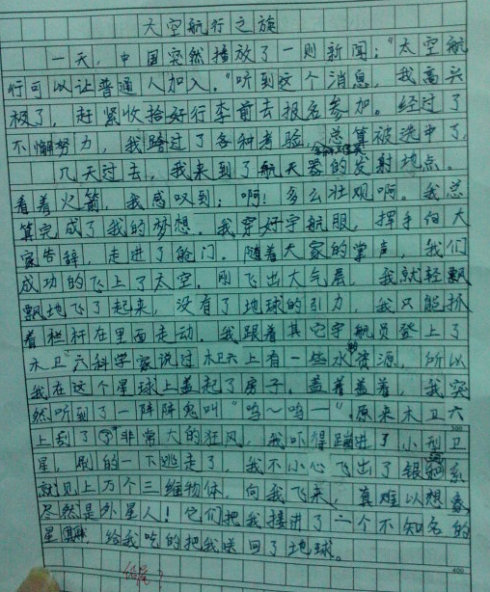 太空航行之旅
一天，中国突然播放了一则新闻："太空航
行可以让普通人加入。"听到这个消息，我高兴
极了，赶紧收拾好行李前去报名参加。经过了
不懈努力，我踏过了各种考验，总算被选中了。
几天过去，我来到了航天器的发射地点。
看着火箭，我感叹到：啊！多么壮观啊。我总
算完成了我的梦想。我穿好宇航服，挥手向大
家告辞，走进了舱门。随着大家的掌声，我们
成功的飞上了太空。刚飞出大气层，我就轻飘
飘地飞了起来，没有了地球的引力，我只能抓
着栏杆在里面走动。我跟着其它宇航员登上了
木卫六科学家说过木卫六上有一些水的资源，所以
我在这个星球上盖起了房子。盖着盖着，我突
然听到了一阵阵鬼叫"呜～呜—"原来木卫六
上刮了非常大的狂风，我吓得蹦进了小型卫
星，刷的一下逃走了，我不小心飞出了银河系
就见上万个三维物体，向我飞来，真难以想象
尽然是外星人！它们把我接进了一个不知名的
星球，给我吃的把我送回了地球。
结尾？
300
400